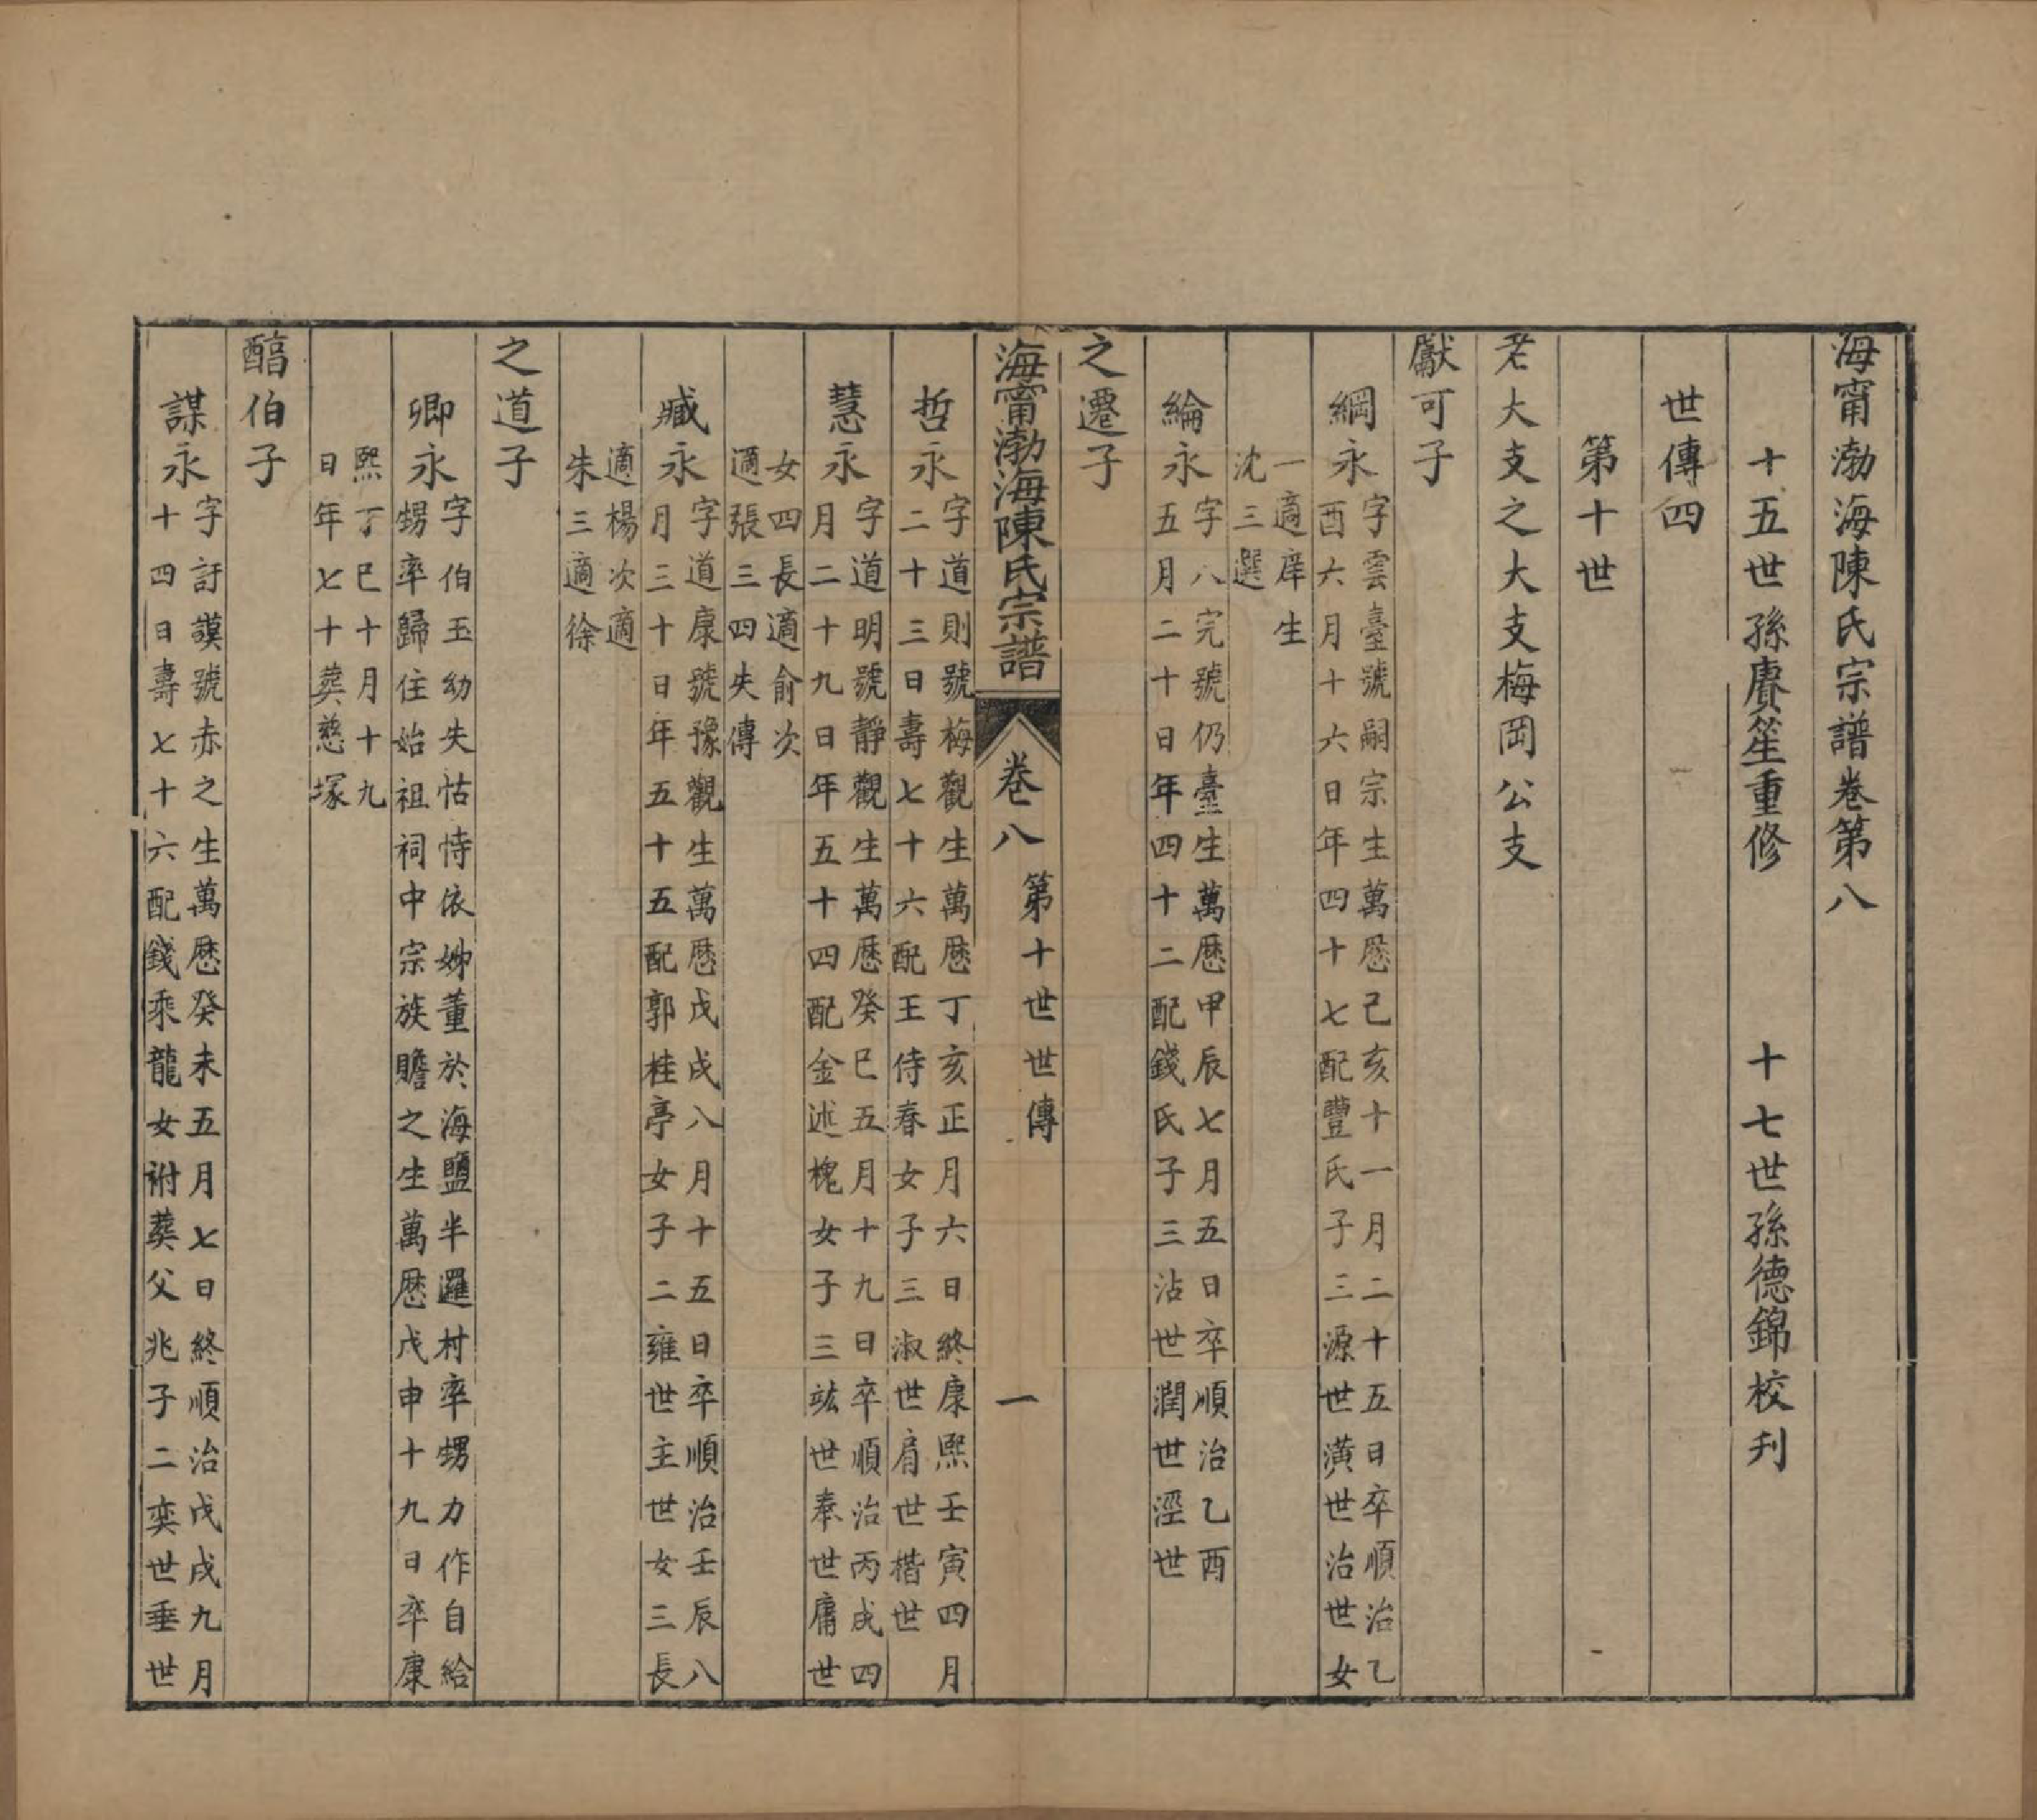 海甯渤海陳氏宗譜卷第八
十五世孫賡笙重修　十七世孫德錦校刋
世傳四
第十世
老大支之大支梅岡公支
獻可子
綱永字雲臺號嗣宗生萬厯己亥十一月二十五日卒順治乙
酉六月十六日年四十七配豐氏子三源世潢世治世女
一適庠生
沈三選
綸永字八完號仍臺生萬厯甲辰七月五日卒順治乙酉
五月二十日年四十二配錢氏子三沾世潤世涇世
之遷子
海甯渤海陳氏宗譜　卷八　第十世世傳　一
哲永字道則號梅觀生萬厯丁亥正月六日終康熙壬寅四月
二十三日壽七十六配王侍春女子三淑世肩世楷世
慧永字道明號靜觀生萬厯癸巳五月十九日卒順治丙戌四
月二十九日年五十四配金述槐女子三竑世奉世庸世
女四長適俞次
適張三四失傳
臧永字道康號豫觀生萬厯戊戌八月十五日卒順治壬辰八
月三十日年五十五配郭桂亭女子二雍世主世女三長
適楊次適
朱三適徐
之道子
卿永字伯玉幼失怙恃依姊董於海鹽半邏村率甥力作自給
甥率歸住始祖祠中宗族贍之生萬厯戊申十九日卒康
熙丁巳十月十九
日年七十葬慈塚
醕伯子
謀永字訏謨號赤之生萬厯癸未五月七日終順治戊戌九月
十四日壽七十六配錢乘龍女祔葬父兆子二奕世垂世